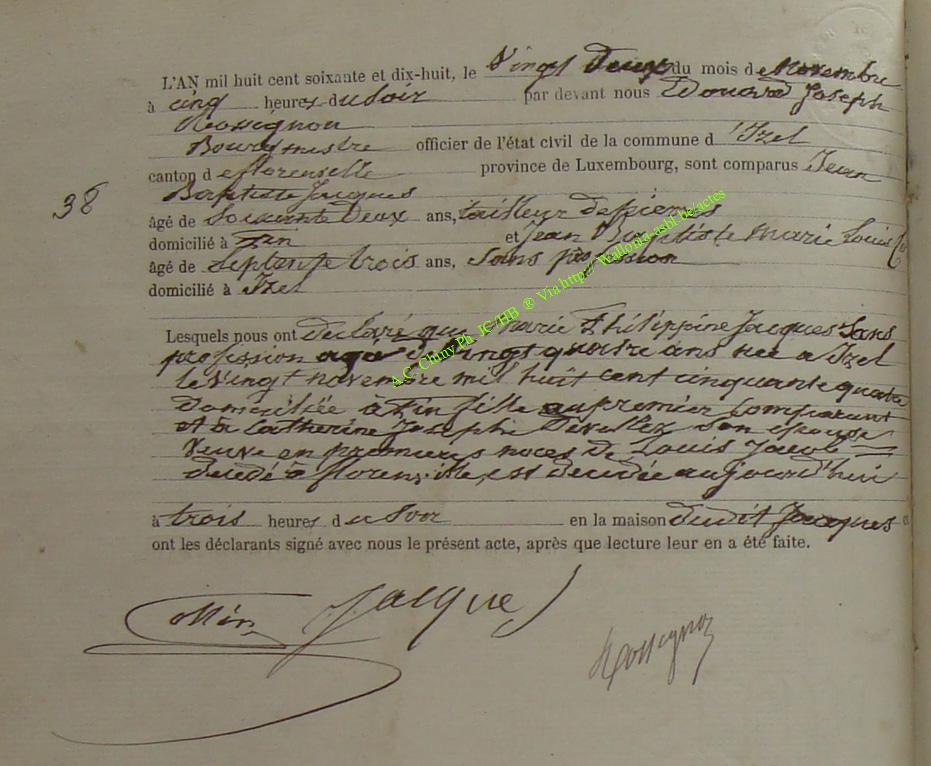 L'AN mil huit cent soixante et dix-huit, le Vingt Deux du mois de Novembre
à cinq heures du Soir par devant nous Edouard Joseph
Rossignon
Bourgmestre officier de l'état civil de la commune d'Izel
canton de florenville province de Luxembourg, sont comparus Jean
Baptiste Jacques
38
âgé de Soixante Deux ans, tailleur de pierres
domicilié à Fin et Jean Baptiste Marie Louis
âgé de Septente trois ans, Sans profession
domicilié à Izel
Lesquels nous ont declaré que Marie Philippine Jacques Sans
profession agé de vingt quatre ans née a Izel
le Vingt novembre mil huit cent cinquante quatre
domiciliée à Fin fille au premier comparant
et à Catherine Joseph son épouse
Veuve en premieres noces de Louis Jacob
decedé à florenville, est decedée aujourd'hui
à trois heures du Soir en la maison dudit Jacques et
ont les déclarants signé avec nous le présent acte, après que lecture leur en a été faite.
Jacques
Rossignon
A.C. Chiny Ph. JC/HB ® Via http://Wallonia-asbl.be/actes